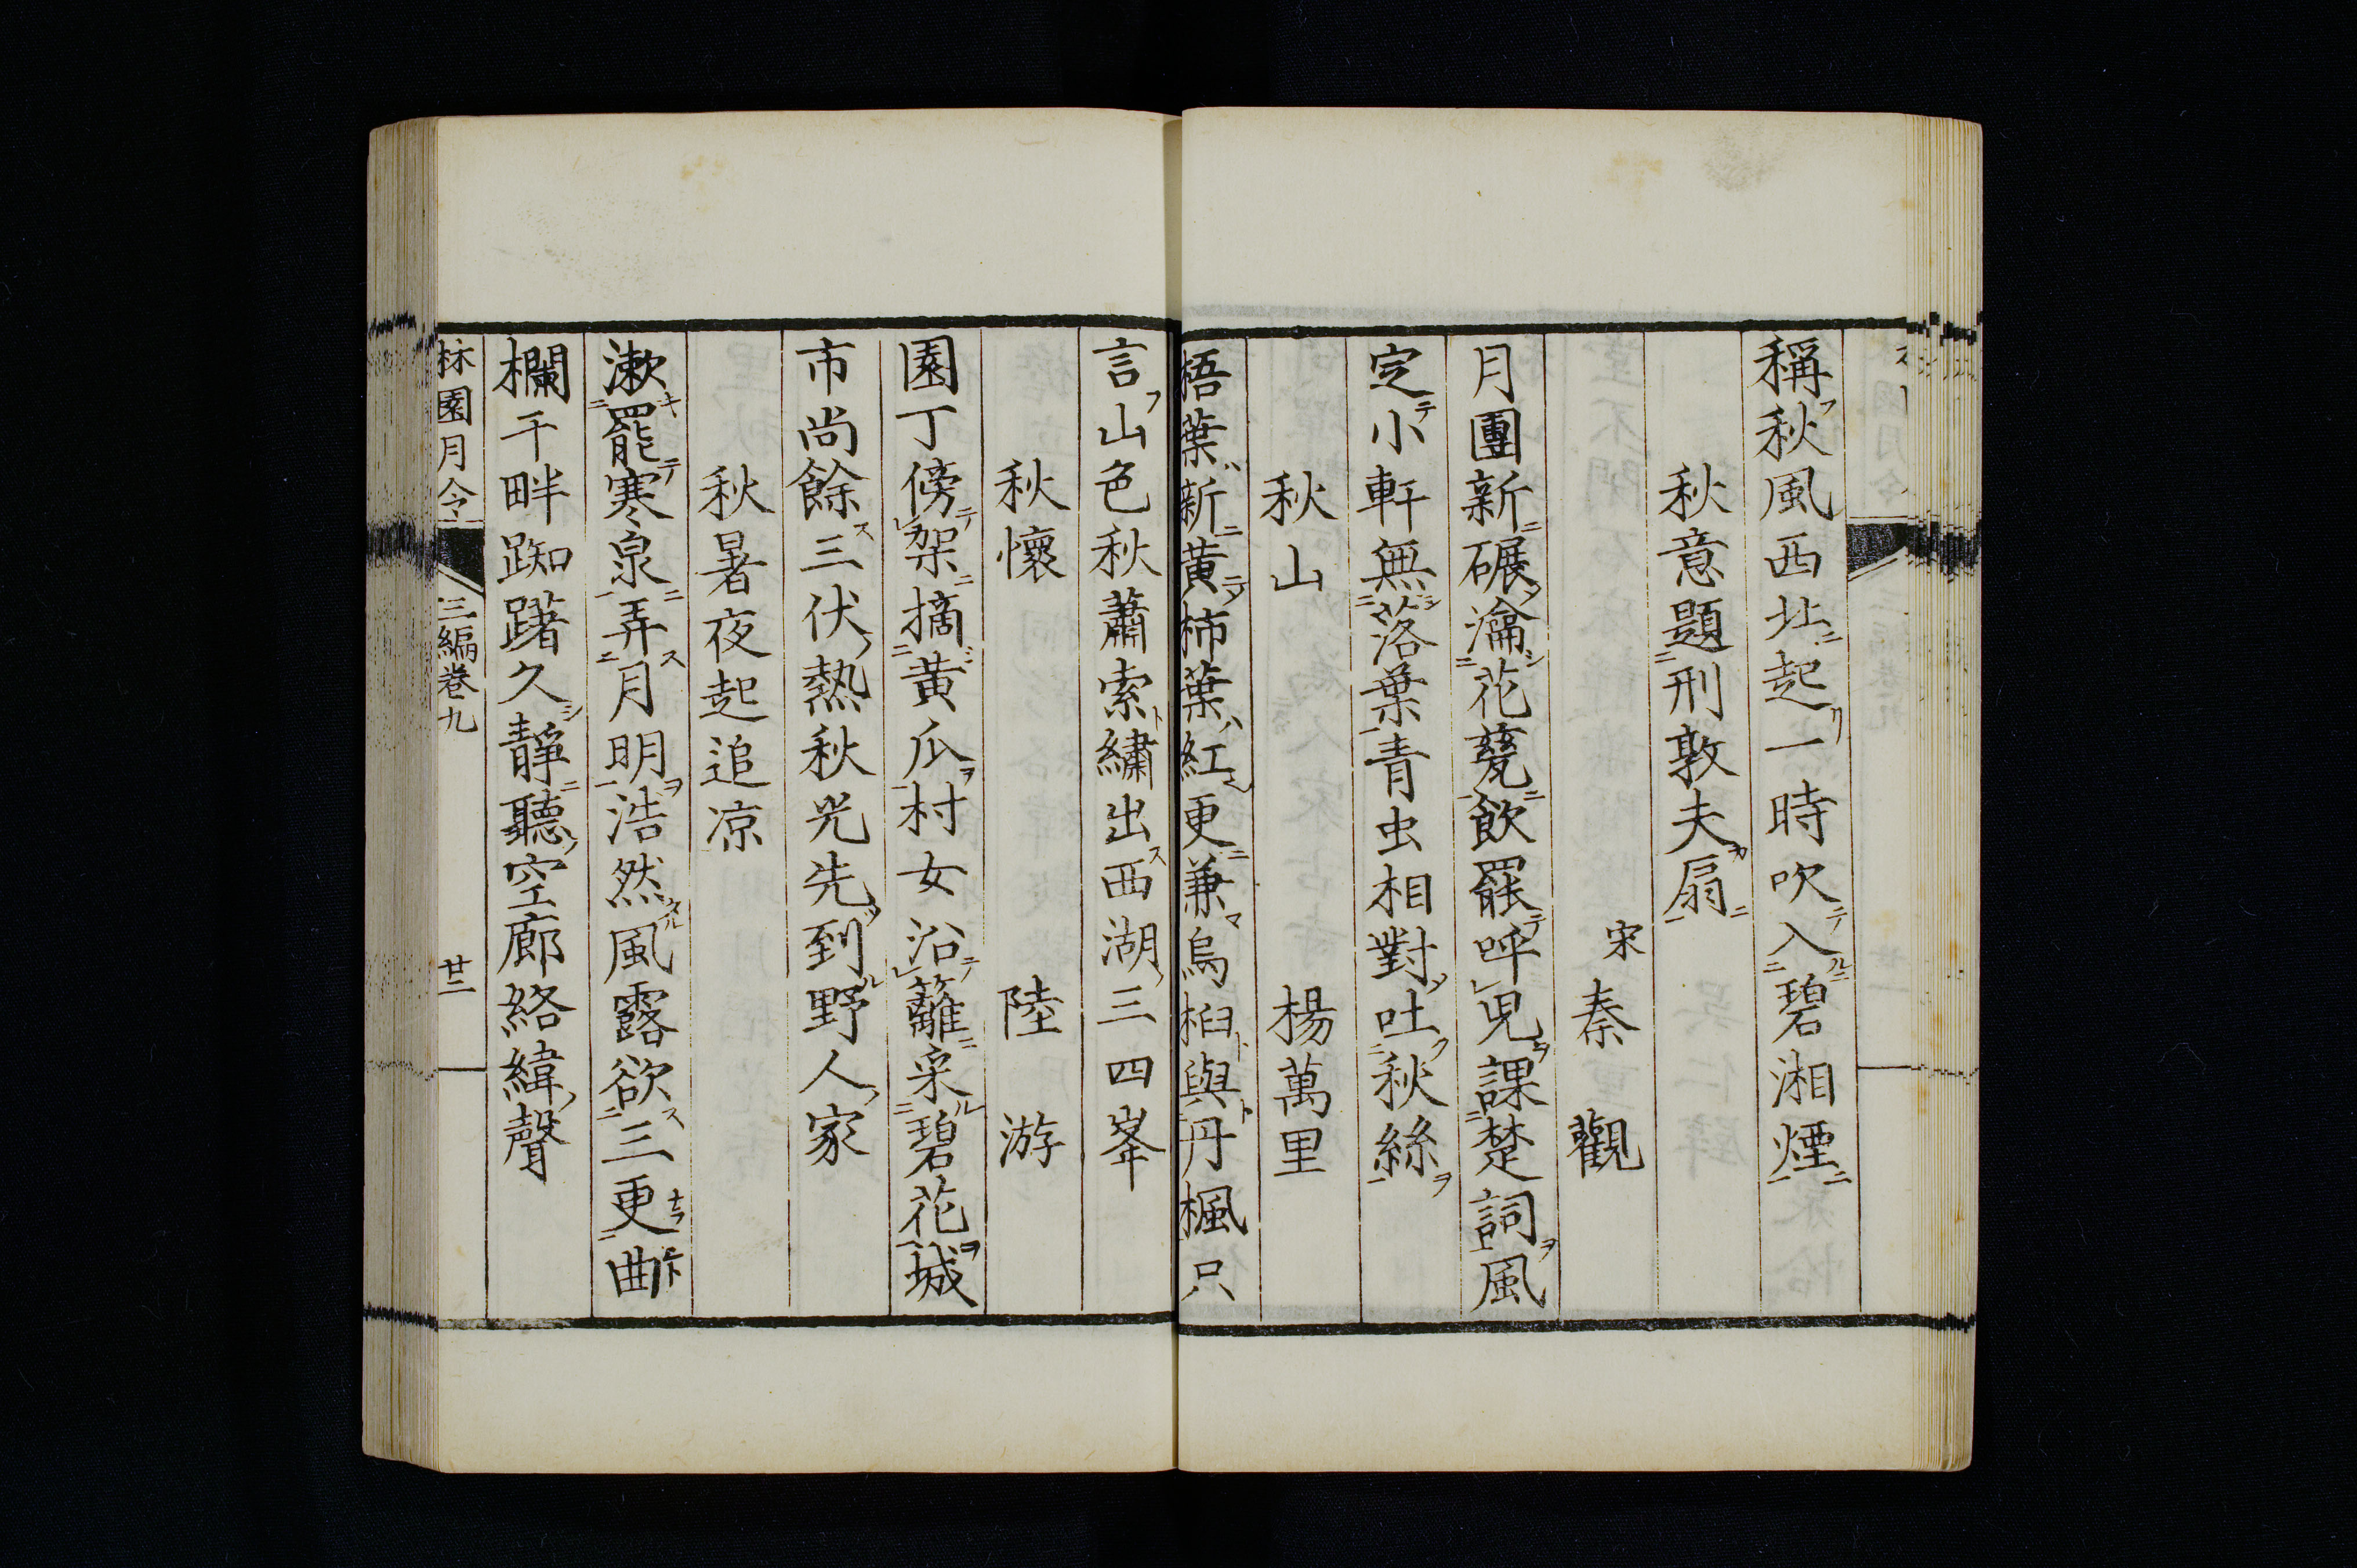 稱秋風西北起一時吹入碧湘煙
秋意題刑敦夫扇
宋 秦觀
月團新碾瀹花甆飲罷呼児課楚詞風
定小軒無落葉青虫相對吐秋絲
秋山 楊萬里
梧葉新黃柿葉紅更兼烏桕與丹楓只
言山色秋蕭索繍出西湖三四峯
秋懷 陸游
園丁傍架摘黄瓜村女沿籬采碧花城
市尚餘三伏熱秋光先到野人家
秋暑夜起追凉
漱罷寒泉弄月明浩然風露欲三更曲
欄干畔踟躇久靜聽空廊絡緯聲
林園月令 三編卷九 廿二